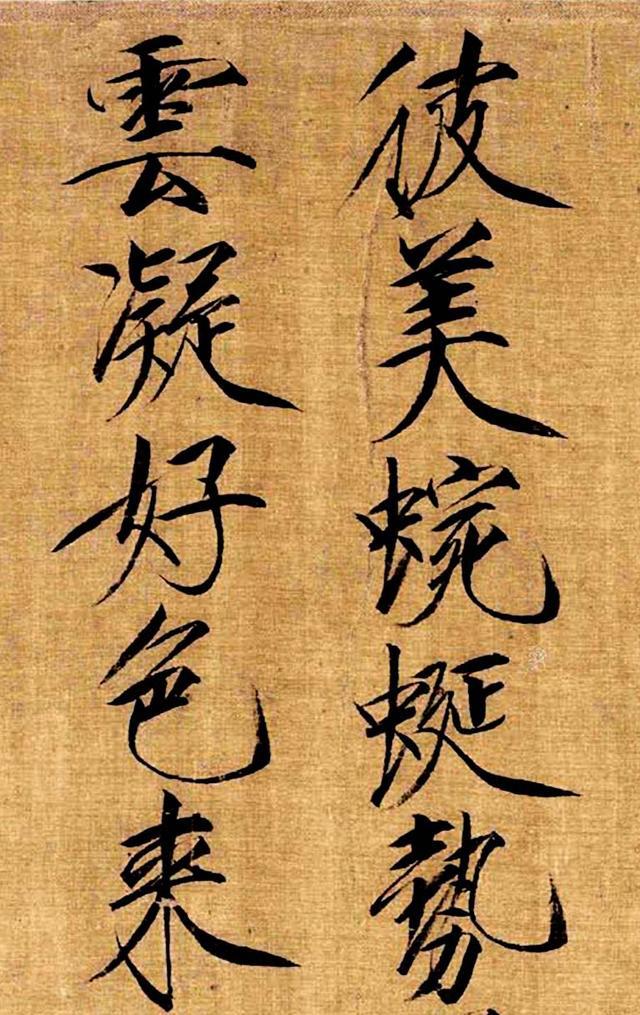 彼美蜿蜒勢
雲凝好色来